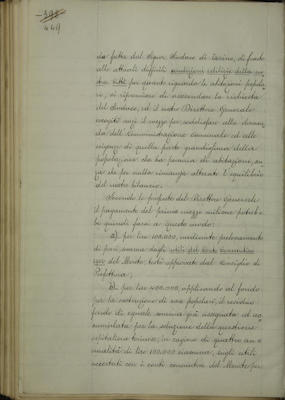 448
449
da fatta dal Signor Sindaco di Torino, di fronte
alle attuali difficili condizioni edilizie della no-
stra città per quanto riguarda le abitazioni popola-
ri, si riprometteva di assecondare la richiesta
del Sindaco, ed il nostro Direttore Generale
escogitò il mezzo per soddisfare alla doman-
da dell'Amministrazione Comunale ed alle
esigenze di quella parte grandissima della
popolazione che ha penuria di abitazioni, sen-
za che per nulla rimanga alterato l'equilibrio
del nostro bilancio.
Secondo le proposte del Direttore Generale
il pagamento del primo mezzo milione potreb-
be quindi farsi in questo modo:
a) per lire 100.000, mediante prelevamento
di pari somma dagli utili del Conto Consuntivo
del Monte, testè approvato dal Consiglio di
Prefettura;
b) per lire 400.000, applicando al fondo
per la costruzione di case popolari, il residuo
fondo di eguale somma già assegnata ed ac-
cumulata per la soluzione della questione
ospitaliera torinese, in ragione di quattro an-
nualità di lire 100.000 ciascuna, sugli utili
accertati con i conti consuntivi del Monte per